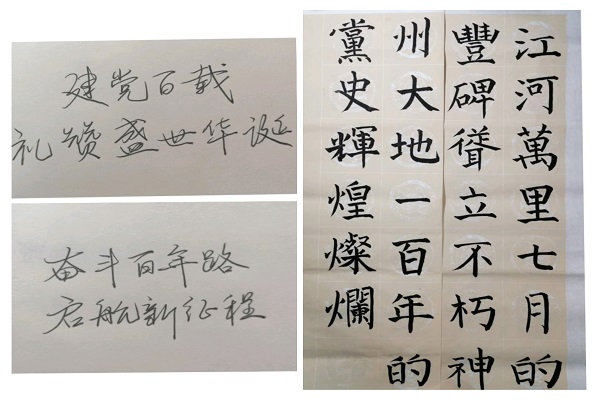 建党百载
礼赞盛世华诞
奋斗百年路
启航新征程
江河萬里七月的
豐碑聳立不朽神
州大地一百年的
黨史輝煌燦爛